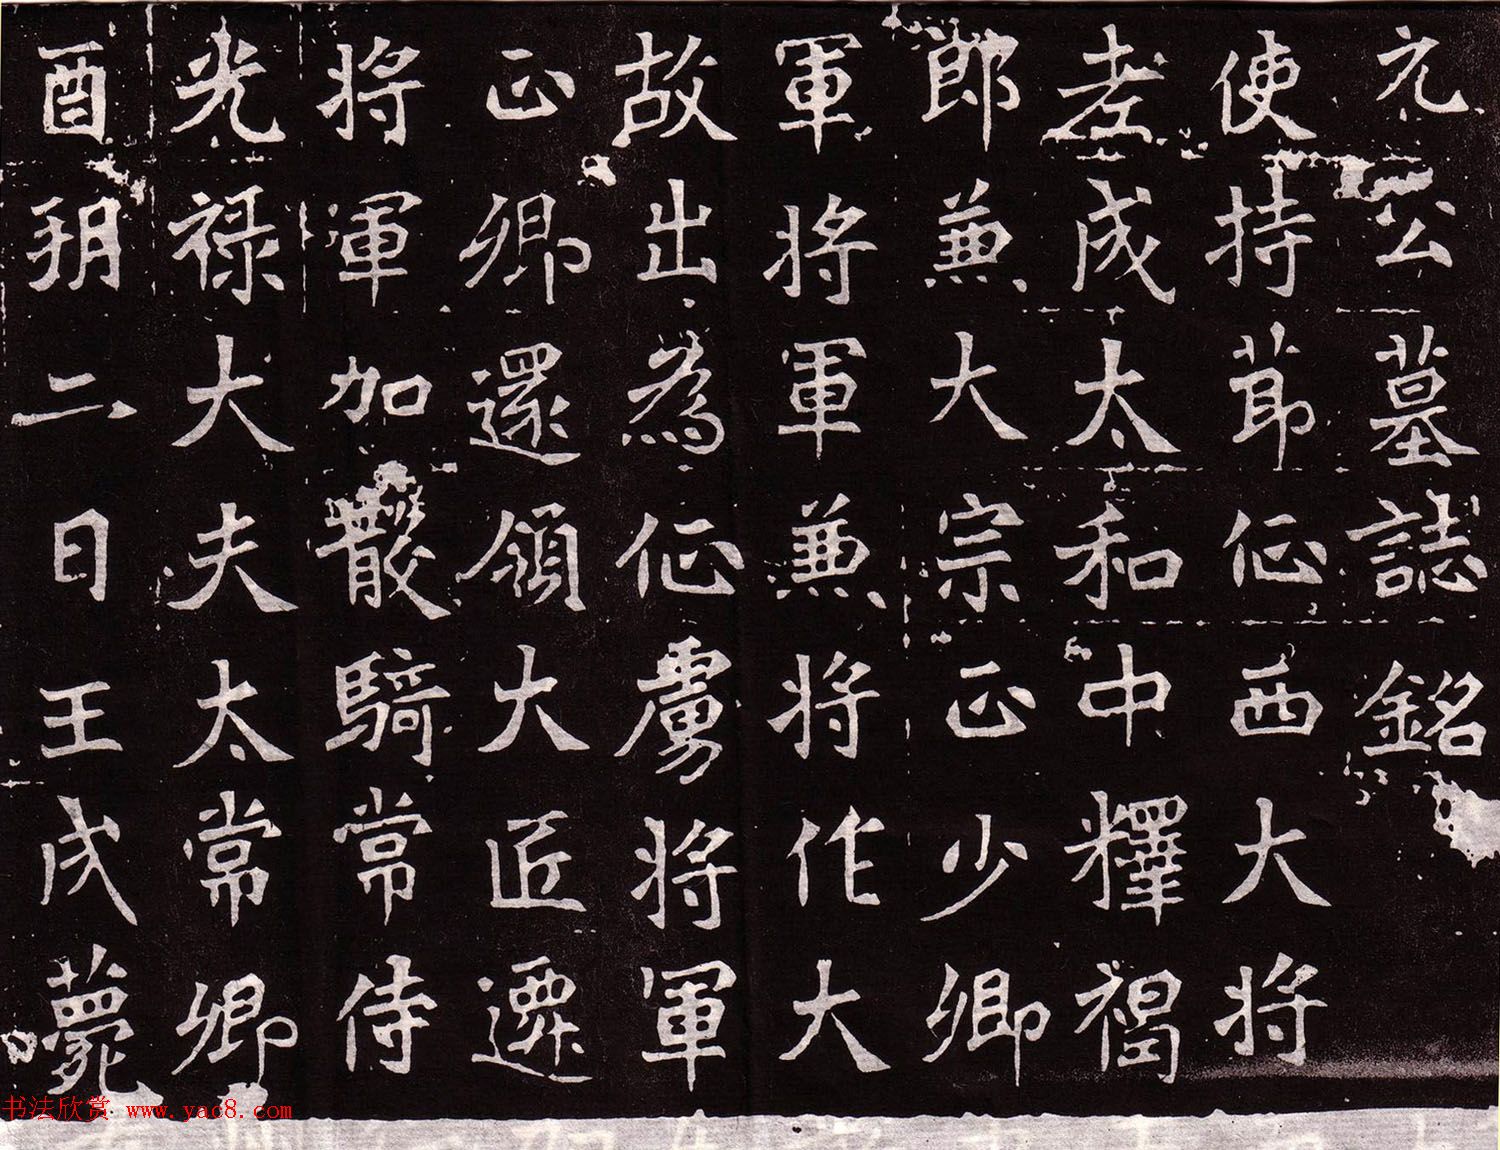 元公墓誌銘
使持莭征西大將
孝成太和中釋褐
郎兼大宗正少卿
軍將軍兼將作大
故出為征虜將軍
正卿還領大匠遷
將軍加散騎常侍
光祿大夫太常卿
酉朔二日壬戌薨
书法欣赏 www.yac8.com